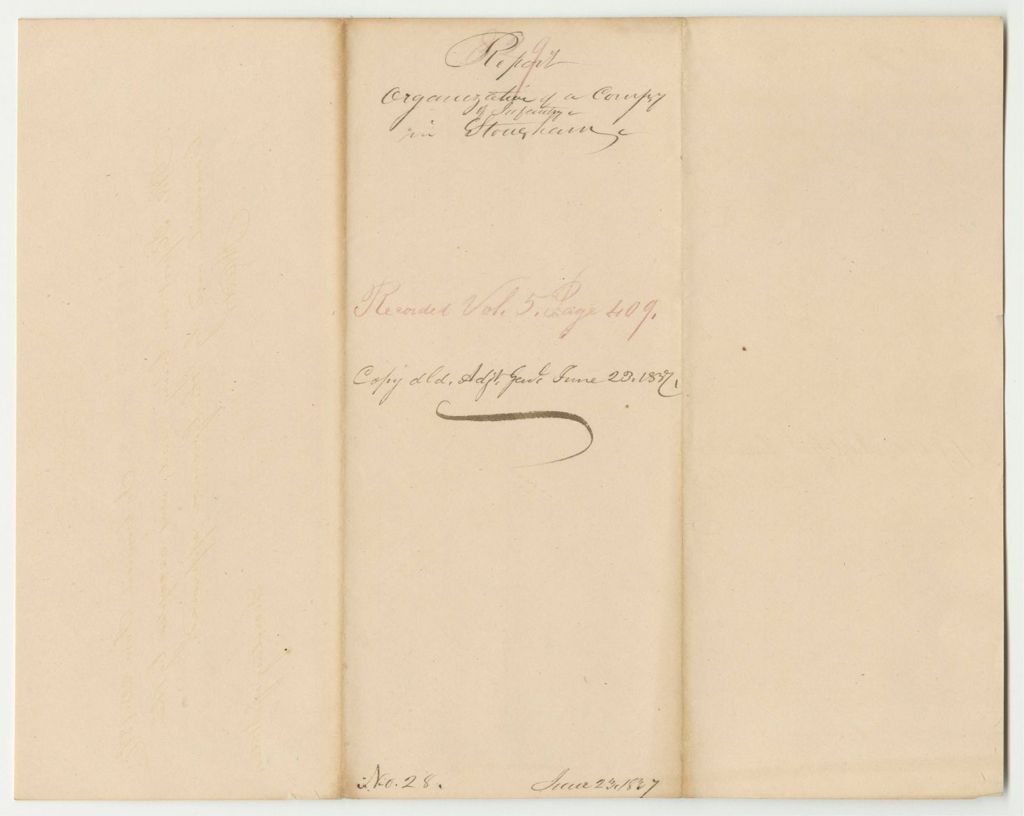 Report
Organization of a Compy
of Infantry
in Stoneham
Recorded Vol. 5. Page 409.
Copy dld. Adjt. Genl. June 23. 1837.
No. 28.
June 23, 1837